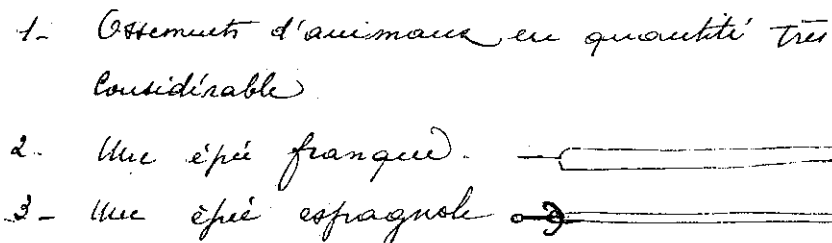 1- Ossements d'animaux en quantité très
considérable
2- Une épée franque.
3- Une épée espagnole